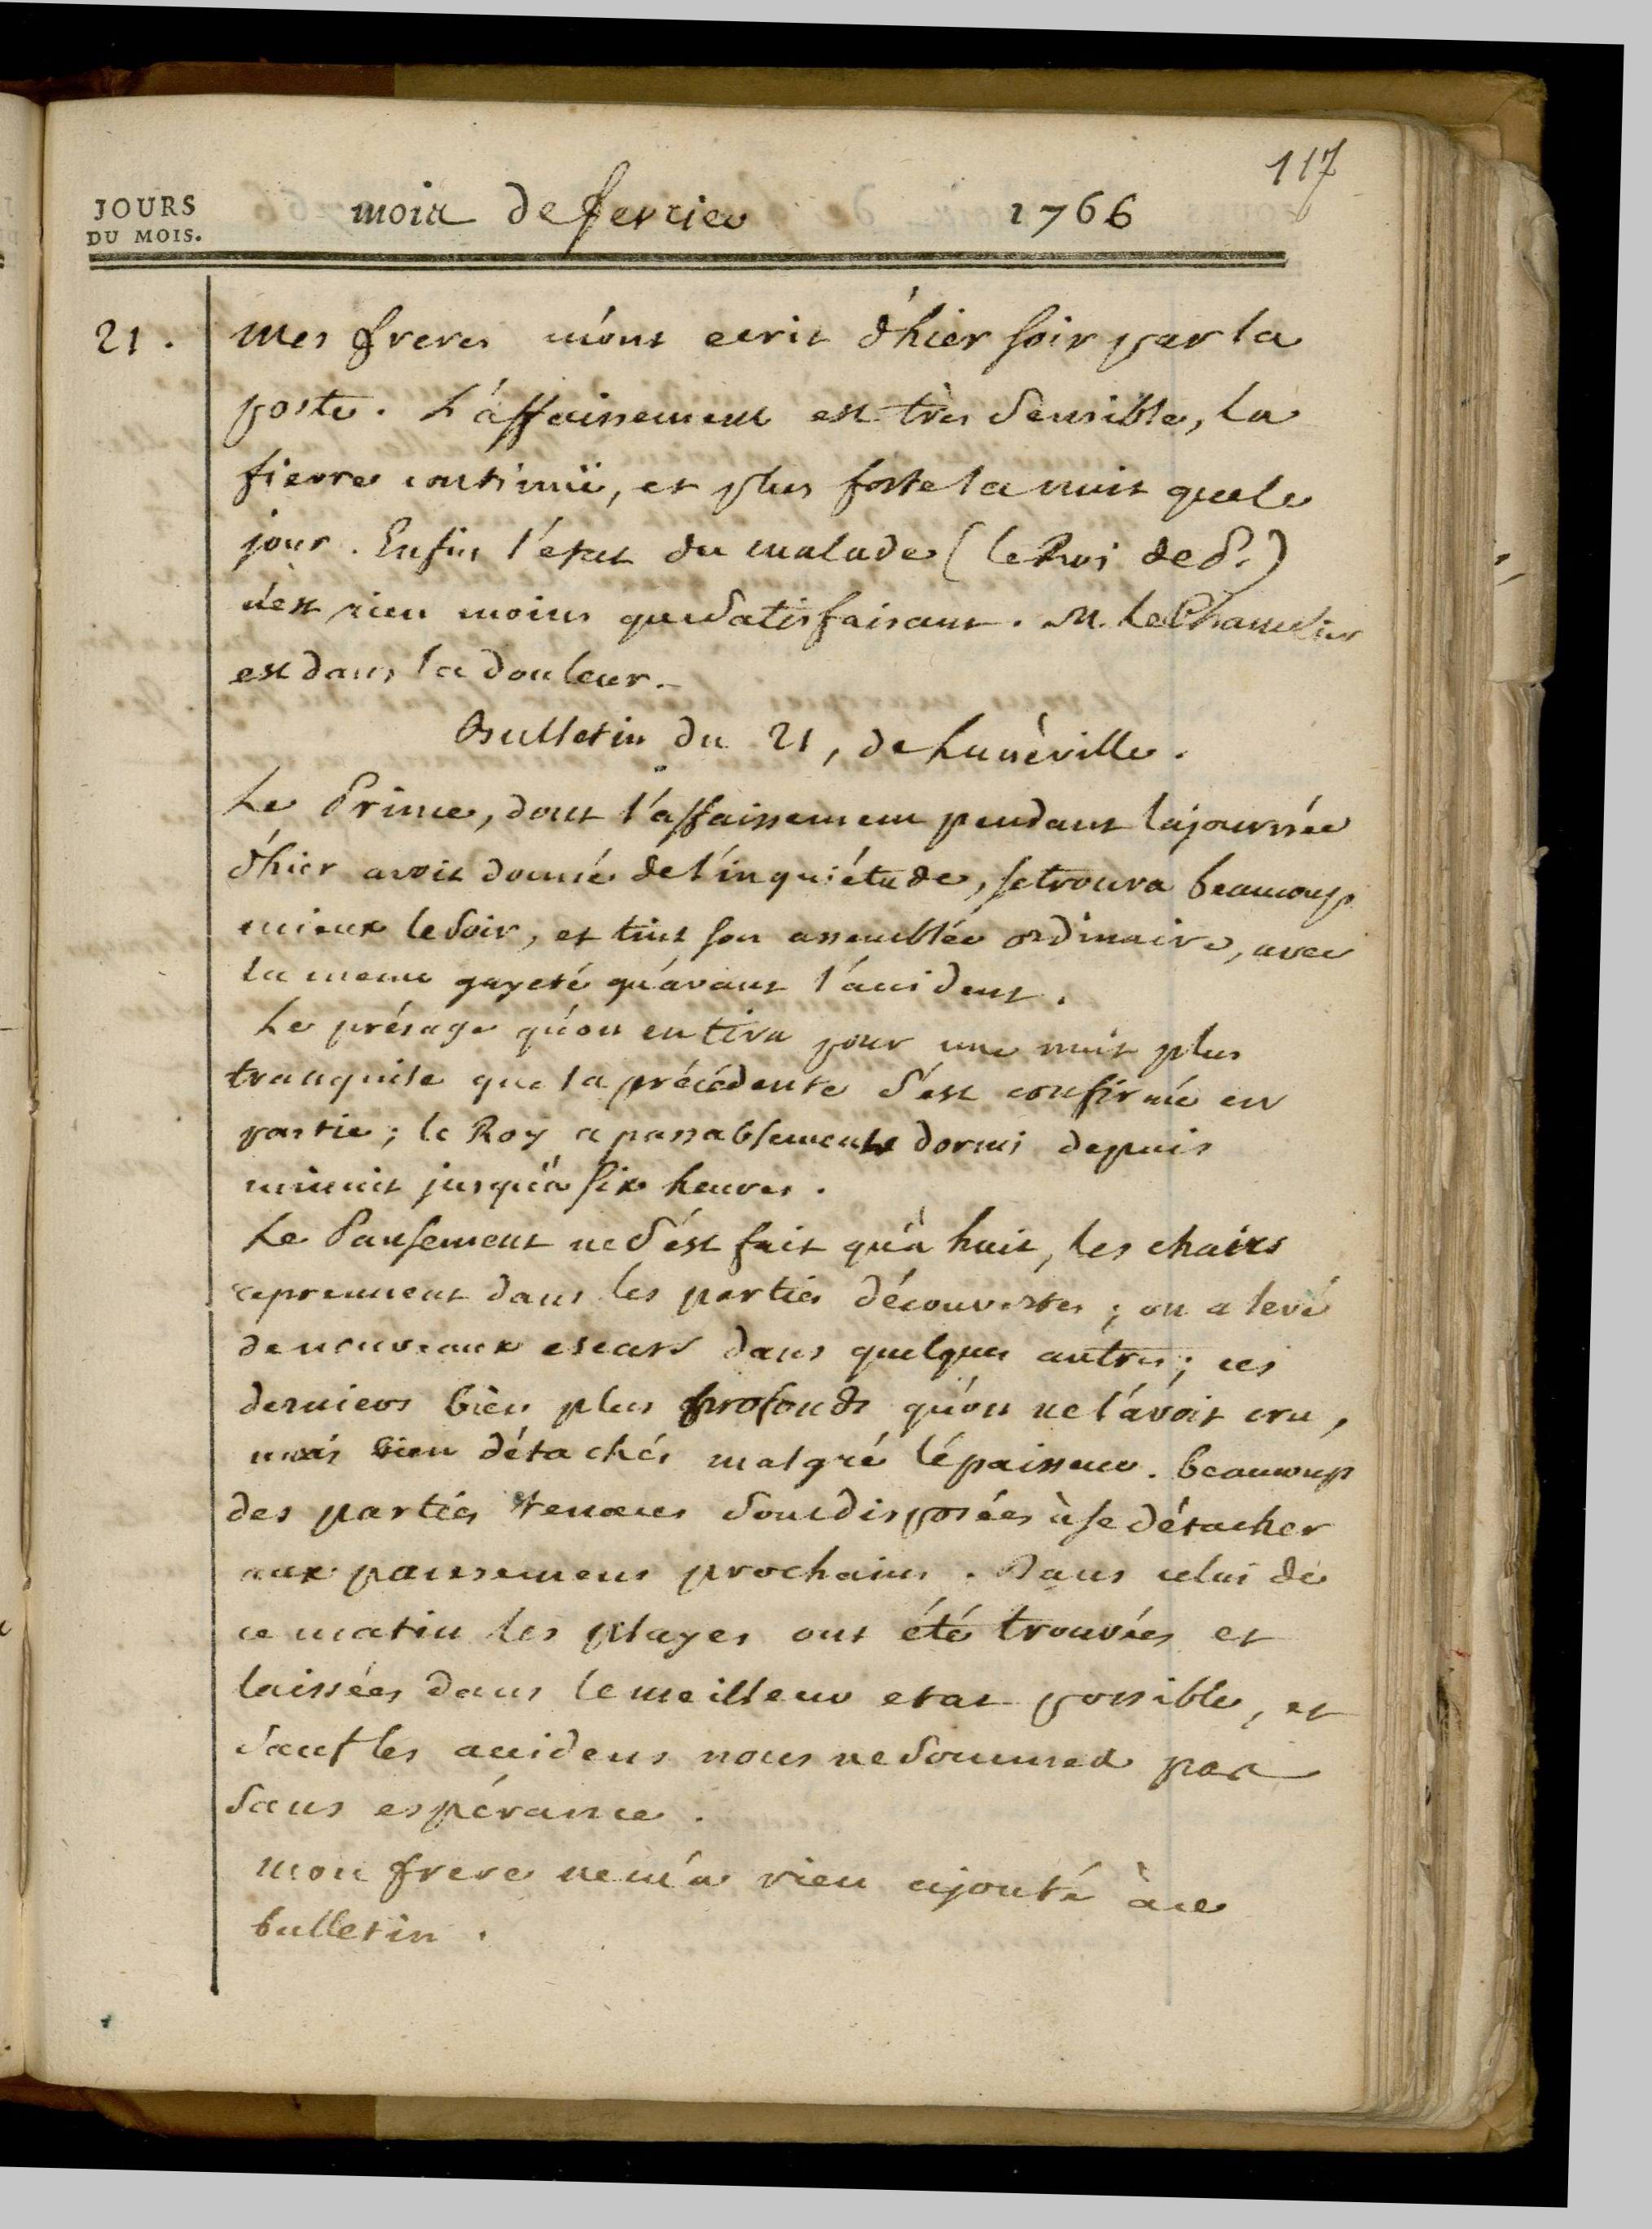 117
JOURS
DU MOIS.
mois de fevrier 1766
21. mes freres m'ont ecrit d'hier soir par la
poste. L'affaissement est très sensible, la
fievre continuë, et plus forte la nuit que le
jour. Enfin l'etat du malade (le Roi de P.)
n'est rien moins que satisfaisant. M. le Chancelier
est dans la douleur.
Bulletin du 21, de Lunéville.
Le Prince, dont l'affaissement pendant la journée
d'hier avoit donné de l'inquiétude, se trouva beaucoup
mieux le soir, et tint son assemblée ordinaire, avec
la meme gayeté qu'avant l'accident.
Le présage qu'on en tira pour une nuit plus
tranquile que la précédente s'est confirmé en
partie; le Roy a passablement dormi depuis
minuit jusqu'à six heures.
Le Pansement ne s'est fait qu'à huit, les chairs
reprennent dans les parties découvertes; on a levé
de nouveaux escars dans quelques autres; ces
derniers bien plus profonds qu'on ne l'avoit cru,
mais bien détachés malgré l'épaisseur. beaucoup
des parties sont disposées à se détacher
aux pansemens prochains. Dans celui de
ce matin les playes ont été trouvées et
laissées dans le meilleur etat possible, et
sauf les accidens nous ne sommes pas
sans espérance.
mon frere ne m'a rien ajouté à ce
bulletin.